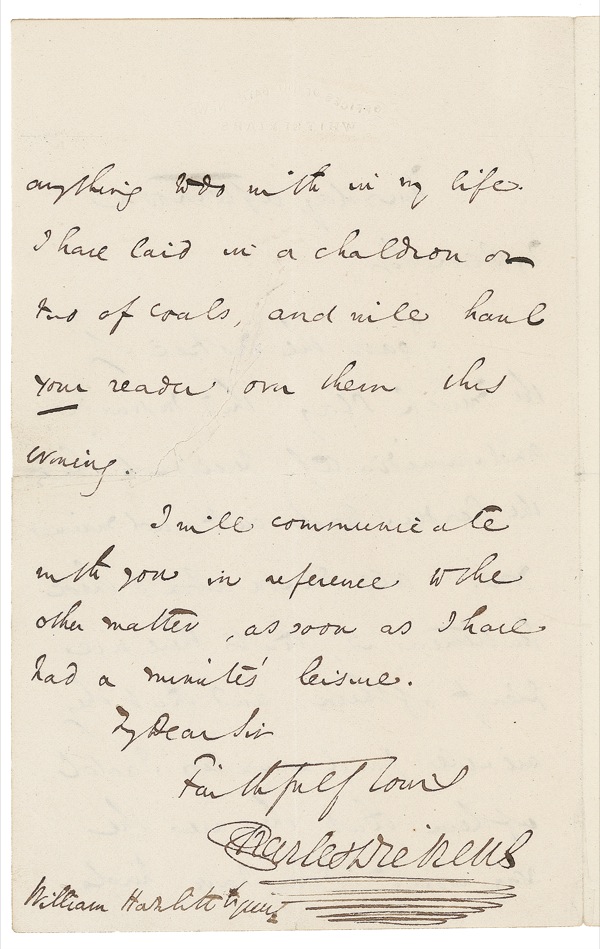 anything to do with in my life.
I have laid in a chaldron or
two of coals, and will haul
your readers over them this
evening.
I will communicate
with you in reference to the
other matter, as soon as I have
had a minute's leisure.
My Dear Sir
Faithfully Yours
Charles Dickens
William Hazlitt Esquire